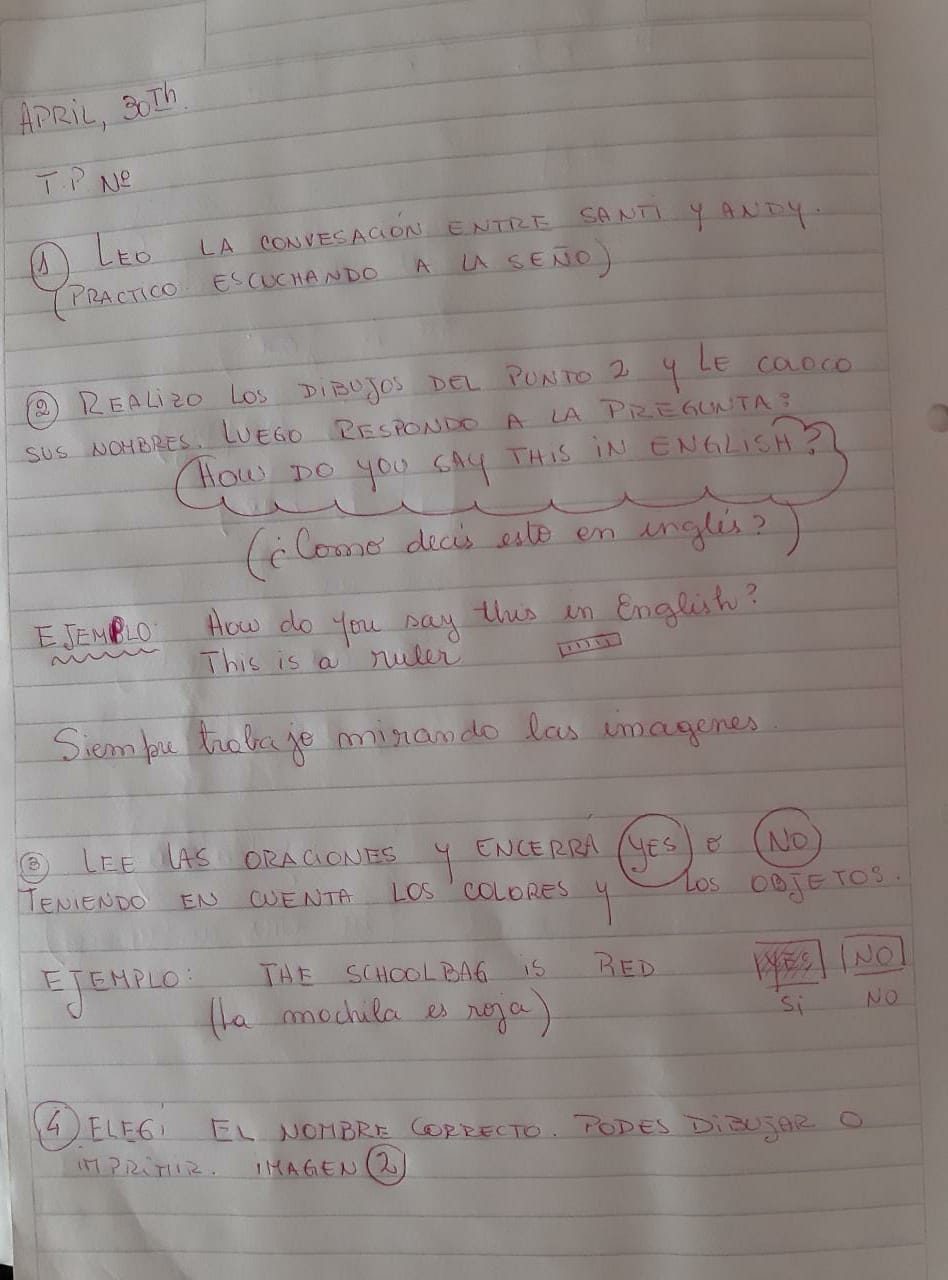 APRIL, 30Th.
T.P Nº
① LEO LA CONVESACIÓN ENTRE SANTI y ANDY.
(PRACTICO ESCUCHANDO A LA SEÑO)
② REALIZO LOS DIBUJOS DEL PUNTO 2 y LE CAOCO
SUS NOMBRES. LUEGO RESPONDO A LA PREGUNTA:
HOW DO YOU SAY THIS IN ENGLISH?
(¿Como decis esto en inglés?)
EJEMPLO: How do you say this in English?
This is a ruler
Siempre trabajo mirando las imagenes.
③ LEE LAS ORACIONES y ENCERRÁ YES o NO
TENIENDO EN CUENTA LOS COLORES y LOS OBJETOS.
EJEMPLO: THE SCHOOLBAG IS RED YES NO
(La mochila es roja) Si NO
④ ELEGí EL NOMBRE CORRECTO. PODES DIBUJAR O
IMPRIMIR. IMAGEN ②